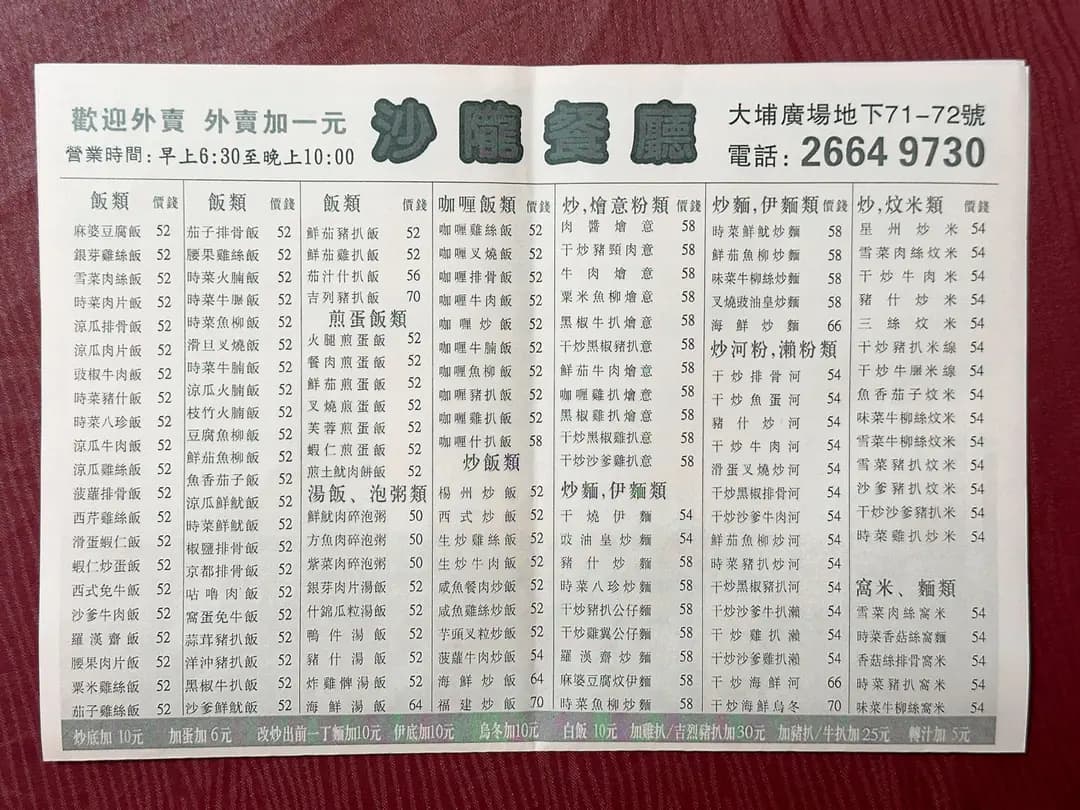 歡迎外賣 外賣加一元
營業時間:早上6:30至晚上10:00
沙隴餐廳
大埔廣場地下71-72號
電話:2664 9730
飯類 價錢
麻婆豆腐飯 52
銀芽雞絲飯 52
雪菜肉絲飯 52
時菜肉片飯 52
涼瓜排骨飯 52
涼瓜肉片飯 52
豉椒牛肉飯 52
時菜豬什飯 52
時菜八珍飯 52
涼瓜牛肉飯 52
涼瓜雞絲飯 52
菠蘿排骨飯 52
西芹雞絲飯 52
滑蛋蝦仁飯 52
蝦仁炒蛋飯 52
西式免牛飯 52
沙爹牛肉飯 52
羅漢齋飯 52
腰果肉片飯 52
粟米雞絲飯 52
茄子雞絲飯 52
飯類 價錢
茄子排骨飯 52
腰果雞絲飯 52
時菜火腩飯 52
時菜牛𦟌飯 52
時菜魚柳飯 52
滑旦叉燒飯 52
時菜牛腩飯 52
涼瓜火腩飯 52
枝竹火腩飯 52
豆腐魚柳飯 52
鮮茄魚柳飯 52
魚香茄子飯 52
涼瓜鮮魷飯 52
時菜鮮魷飯 52
椒鹽排骨飯 52
京都排骨飯 52
咕嚕肉飯 52
窩蛋免牛飯 52
蒜茸豬扒飯 52
洋沖豬扒飯 52
黑椒牛扒飯 52
沙爹鮮魷飯 52
飯類 價錢
鮮茄豬扒飯 52
鮮茄雞扒飯 52
茄汁什扒飯 56
吉列豬扒飯 70
煎蛋飯類
火腿煎蛋飯 52
餐肉煎蛋飯 52
鮮茄煎蛋飯 52
叉燒煎蛋飯 52
芙蓉煎蛋飯 52
蝦仁煎蛋飯 52
煎土魷肉餅飯 52
湯飯、泡粥類
鮮魷肉碎泡粥 50
方魚肉碎泡粥 50
紫菜肉碎泡粥 50
銀芽肉片湯飯 52
什錦瓜粒湯飯 52
鴨件湯飯 52
豬什湯飯 52
炸雞髀湯飯 52
海鮮湯飯 64
咖喱飯類 價錢
咖喱雞絲飯 52
咖喱叉燒飯 52
咖喱排骨飯 52
咖喱牛肉飯 52
咖喱炒飯 52
咖喱牛腩飯 52
咖喱魚柳飯 52
咖喱豬扒飯 52
咖喱雞扒飯 52
咖喱什扒飯 58
炒飯類
楊州炒飯 52
西式炒飯 52
生炒雞絲飯 52
生炒牛肉飯 52
咸魚餐肉炒飯 52
咸魚雞絲炒飯 52
芋頭叉粒炒飯 52
菠蘿牛肉炒飯 54
海鮮炒飯 64
福建炒飯 70
炒,燴意粉類 價錢
肉醬燴意 58
干炒豬頸肉意 58
牛肉燴意 58
粟米魚柳燴意 58
黑椒牛扒燴意 58
干炒黑椒豬扒意 58
鮮茄牛肉燴意 58
咖喱雞扒燴意 58
黑椒雞扒燴意 58
干炒黑椒雞扒意 58
干炒沙爹雞扒意 58
炒麵,伊麵類
干燒伊麵 54
豉油皇炒麵 54
豬什炒麵 58
時菜八珍炒麵 58
干炒豬扒公仔麵 58
干炒雞翼公仔麵 58
羅漢齋炒麵 58
麻婆豆腐炆伊麵 58
時菜魚柳炒麵 58
炒麵,伊麵類 價錢
時菜鮮魷炒麵 58
鮮茄魚柳炒麵 58
味菜牛柳絲炒麵 58
叉燒豉油皇炒麵 58
海鮮炒麵 66
炒河粉,瀨粉類
干炒排骨河 54
干炒魚蛋河 54
豬什炒河 54
干炒牛肉河 54
滑蛋叉燒炒河 54
干炒黑椒排骨河 54
干炒沙爹牛肉河 54
鮮茄魚柳炒河 54
時菜豬扒炒河 54
干炒黑椒豬扒河 54
干炒沙爹牛扒瀨 54
干炒雞扒瀨 54
干炒沙爹雞扒瀨 54
干炒海鮮河 66
干炒海鮮烏冬 70
炒,炆米類 價錢
星州炒米 54
雪菜肉絲炆米 54
干炒牛肉米 54
豬什炒米 54
三絲炆米 54
干炒豬扒米線 54
干炒牛𦟌米線 54
魚香茄子炆米 54
味菜牛柳絲炆米 54
雪菜牛柳絲炆米 54
雪菜豬扒炆米 54
沙爹豬扒炆米 54
干炒沙爹豬扒米 54
時菜雞扒炒米 54
窩米、麵類
雪菜肉絲窩米 54
時菜香菇絲窩麵 54
香菇絲排骨窩米 54
時菜豬扒窩米 54
味菜牛柳絲窩米 54
炒底加 10元 加蛋加 6元 改炒出前一丁麵加10元 伊底加10元 烏冬加10元 白飯 10元 加雞扒/吉烈豬扒加30元 加豬扒/牛扒加25元 轉汁加 5元